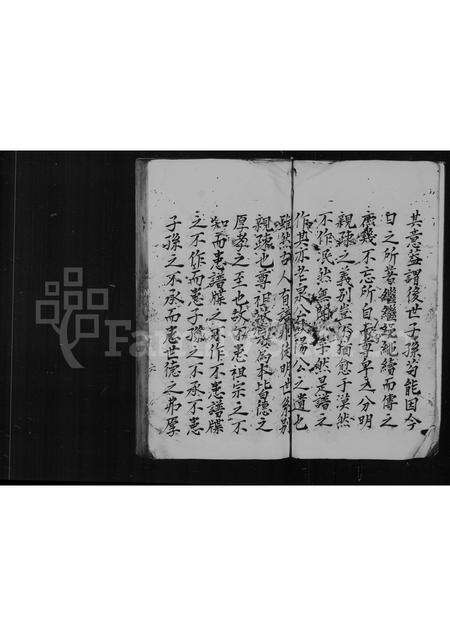 其意蓋謂後世子孫茍能因今
日之所著繼繼繩繩續而傳之
庶幾不忘所自而尊卑之分明
親疎之義別豈不猶愈于漠然
不作泯然無聞然是譜之
作其亦老泉公歐陽公之遺也
雖然古人自明世系別
親疎也尊祖為本皆德之
厚孝之至也故不患祖宗之不
知而患譜牒之不作不患譜牒
之不作而患子孫之不承不患
子孫之不承而患世德之弗厚